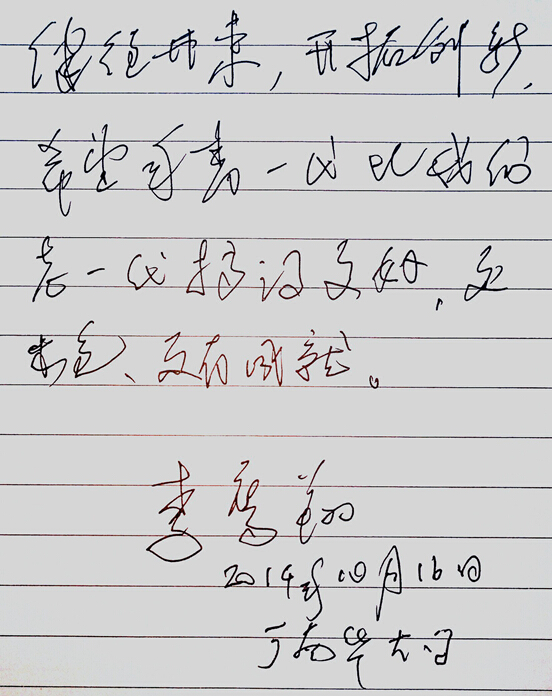 继往开来，开拓创新，
希望年青一代比我们
老一代搞得更好、更
出色、更有成就。
李鹰翔
2014年10月16日
于南华大学